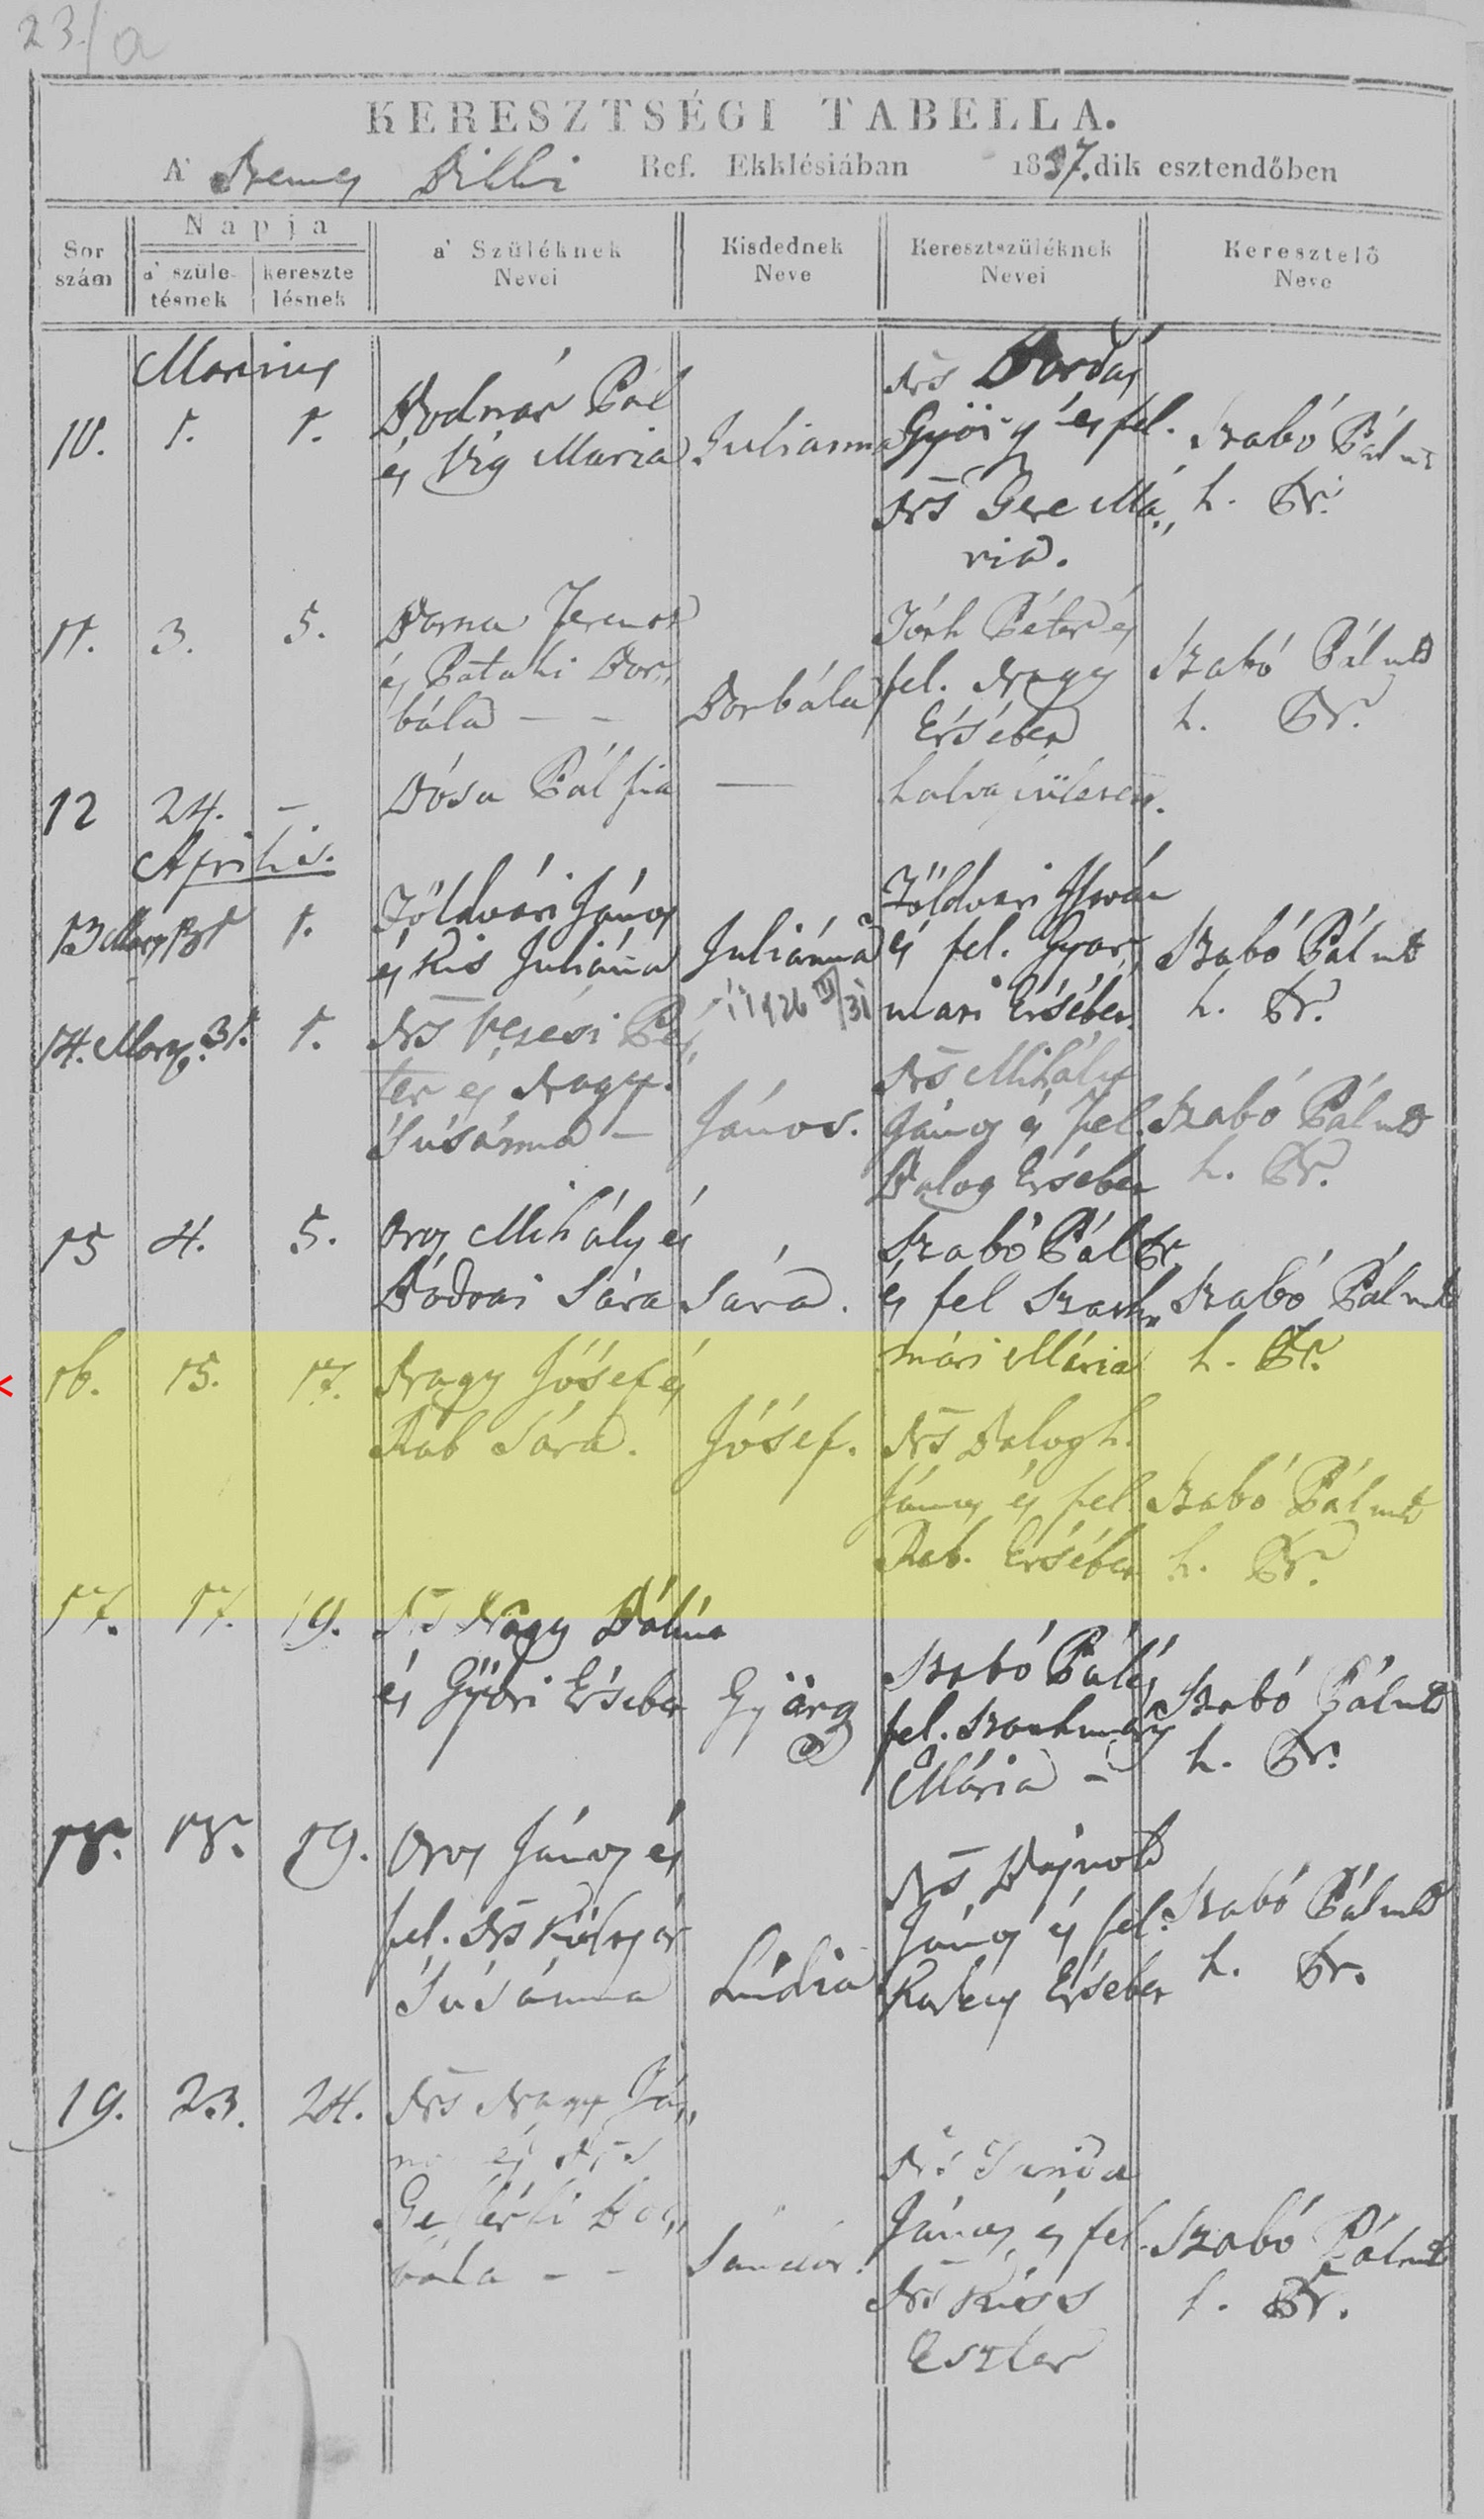 23/a
KERESZTSÉGI TABELLA.
A' Szemes Bikki Ref. Ekklésiában 1837.dik esztendőben
Sor szám
Napja
a' születésnek
keresztelésnek
a' Szüléknek Nevei
Kisdednek Neve
Keresztszüléknek Nevei
Keresztelő Neve
Martius
10. 1. 1.
Bodnár Pál
és Víg Maria
Juliánna
Ns Bordás
György és fel.
Ns Gere Má„
ria.
Szabó Pál
h. Pr.
11. 3. 5.
Barna Ferentz
és Pataki Bor„
bála – –
Borbála
Tóth Péter és
fel. Nagy
Ersébet
Szabó Pál
h. Pr.
12 24. –
Dósa Pál fia
—
halva született.
Aprilis.
13 Mart 31 1.
Földvári János
és Kis Juliánna
Juliánna
Földvari István
és fel. Gyar„
mari Ersébet
Szabó Pál
h. Pr.
14. Mart. 31. 1.
Ns Vezési Pé„
ter és Nagy
Susánna –
János.
Ns Mihály
János és Fel.
Balog Ersébet
Szabó Pál
h. Pr.
15 4. 5.
Oros Mihály és
Bódvai Sára
Sára.
Szabó Pál Pr.
és fel Szath„
mári Mária
Szabó Pál
h. Pr.
<
16. 15. 17.
Nagy Jósef és
Rab Sára.
Jósef.
Ns Balogh.
János és fel.
Rab. Ersébet
Szabó Pál
h. Pr.
17. 17. 19.
Ns Nagy Bálint
és Győri Ersébet
György
Szabó Pál és
fel. Szathmáry
Mária –
Szabó Pál
h. Pr.
18. 18. 19.
Oros János és
fel. Ns
Susánna
Lidia
Ns Bajnok
János és fel.
Ersébet
Szabó Pál
h. Pr.
19. 23. 24.
Ns Nagy Já„
nos és Ns
Gellérhi Bor„
bála – –
Sándor.
Ns
János és fel.
Ns Kiss
Eszter
Szabó Pál
h. Pr.